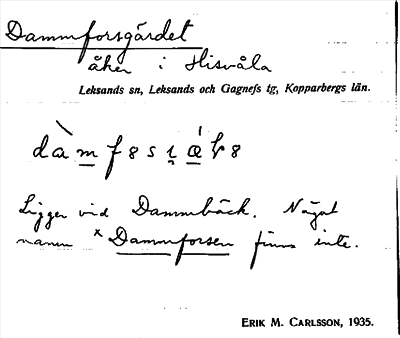 Dammforsgärdet
åker i Hisvåla
Leksands sn, Leksands och Gagnefs tg, Kopparbergs län.
Ligger vid Dammbäck. Något
namn × Dammforsen finns inte.
ERIK M. CARLSSON, 1935.